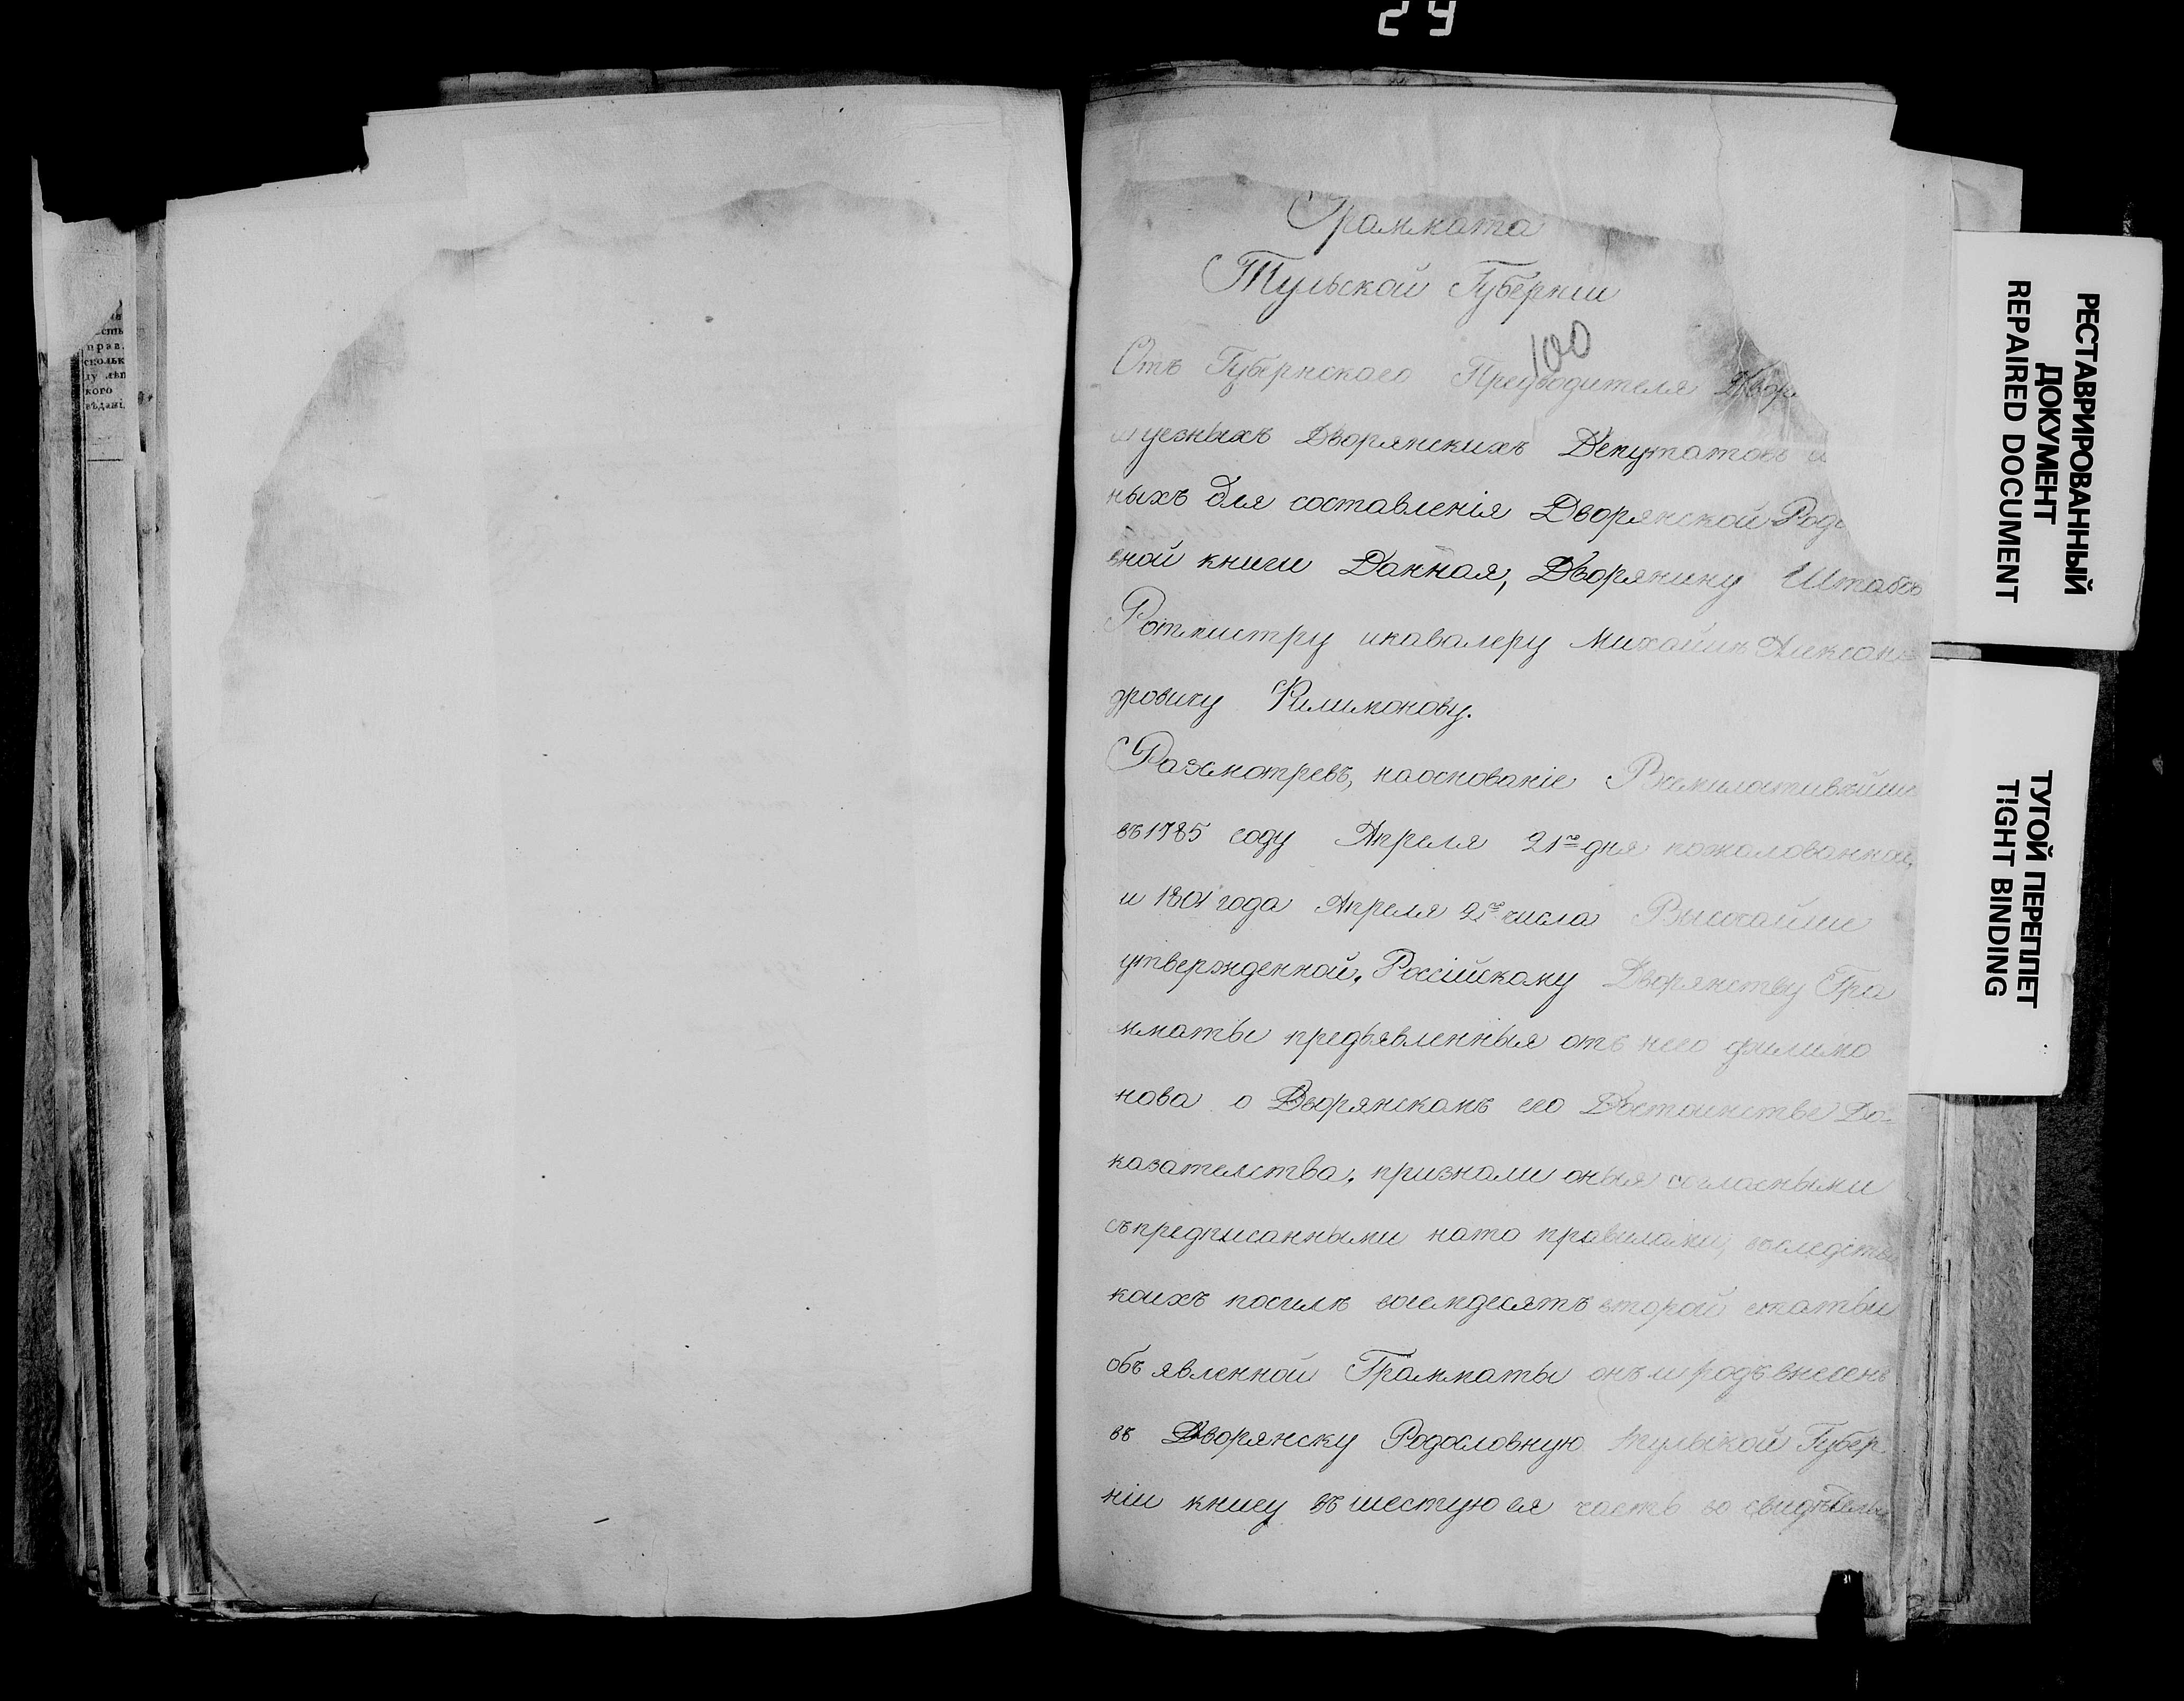 29
Грамката
Тульской Губерніи
100
Отъ Губернского Предводителя Двор
и уезныхъ Дворянскихъ Депутатовъ и
ныхъ для составленія Дворянской Родо
вной книги Данная, Дворянину Штабсъ
Ротмистру икавалеру Михаилѣ Алексан=
дровичу Филимонову.
Разсмотревъ, наоснованіе Всемилостивѣйши
въ 1785 году Апреля 21го дня пожалованной,
и 1801 года Апреля 2го числа Высочайше
утвержденной, Россійскому Дворянству Гра
мматы предъявленныя отъ него филимо
нова о Дворянскомъ его Достоинстве До-
казателства, признали оныя согласными
съпредписанными нато правилами, вследств
коихъ посилѣ восемдесятъ второй статьи
объявленной Грамматы онъ и родъ внесенъ
въ Дворянску Родословную тульской Губер
ніи книгу въ шестую ея часть во свидѣтель
прав.
кого
РЕСТАВРИРОВАННЫЙ
ДОКУМЕНТ
REPAIRED DOCUMENT
ТУГОЙ ПЕРЕПЛЕТ
TIGHT BINDING